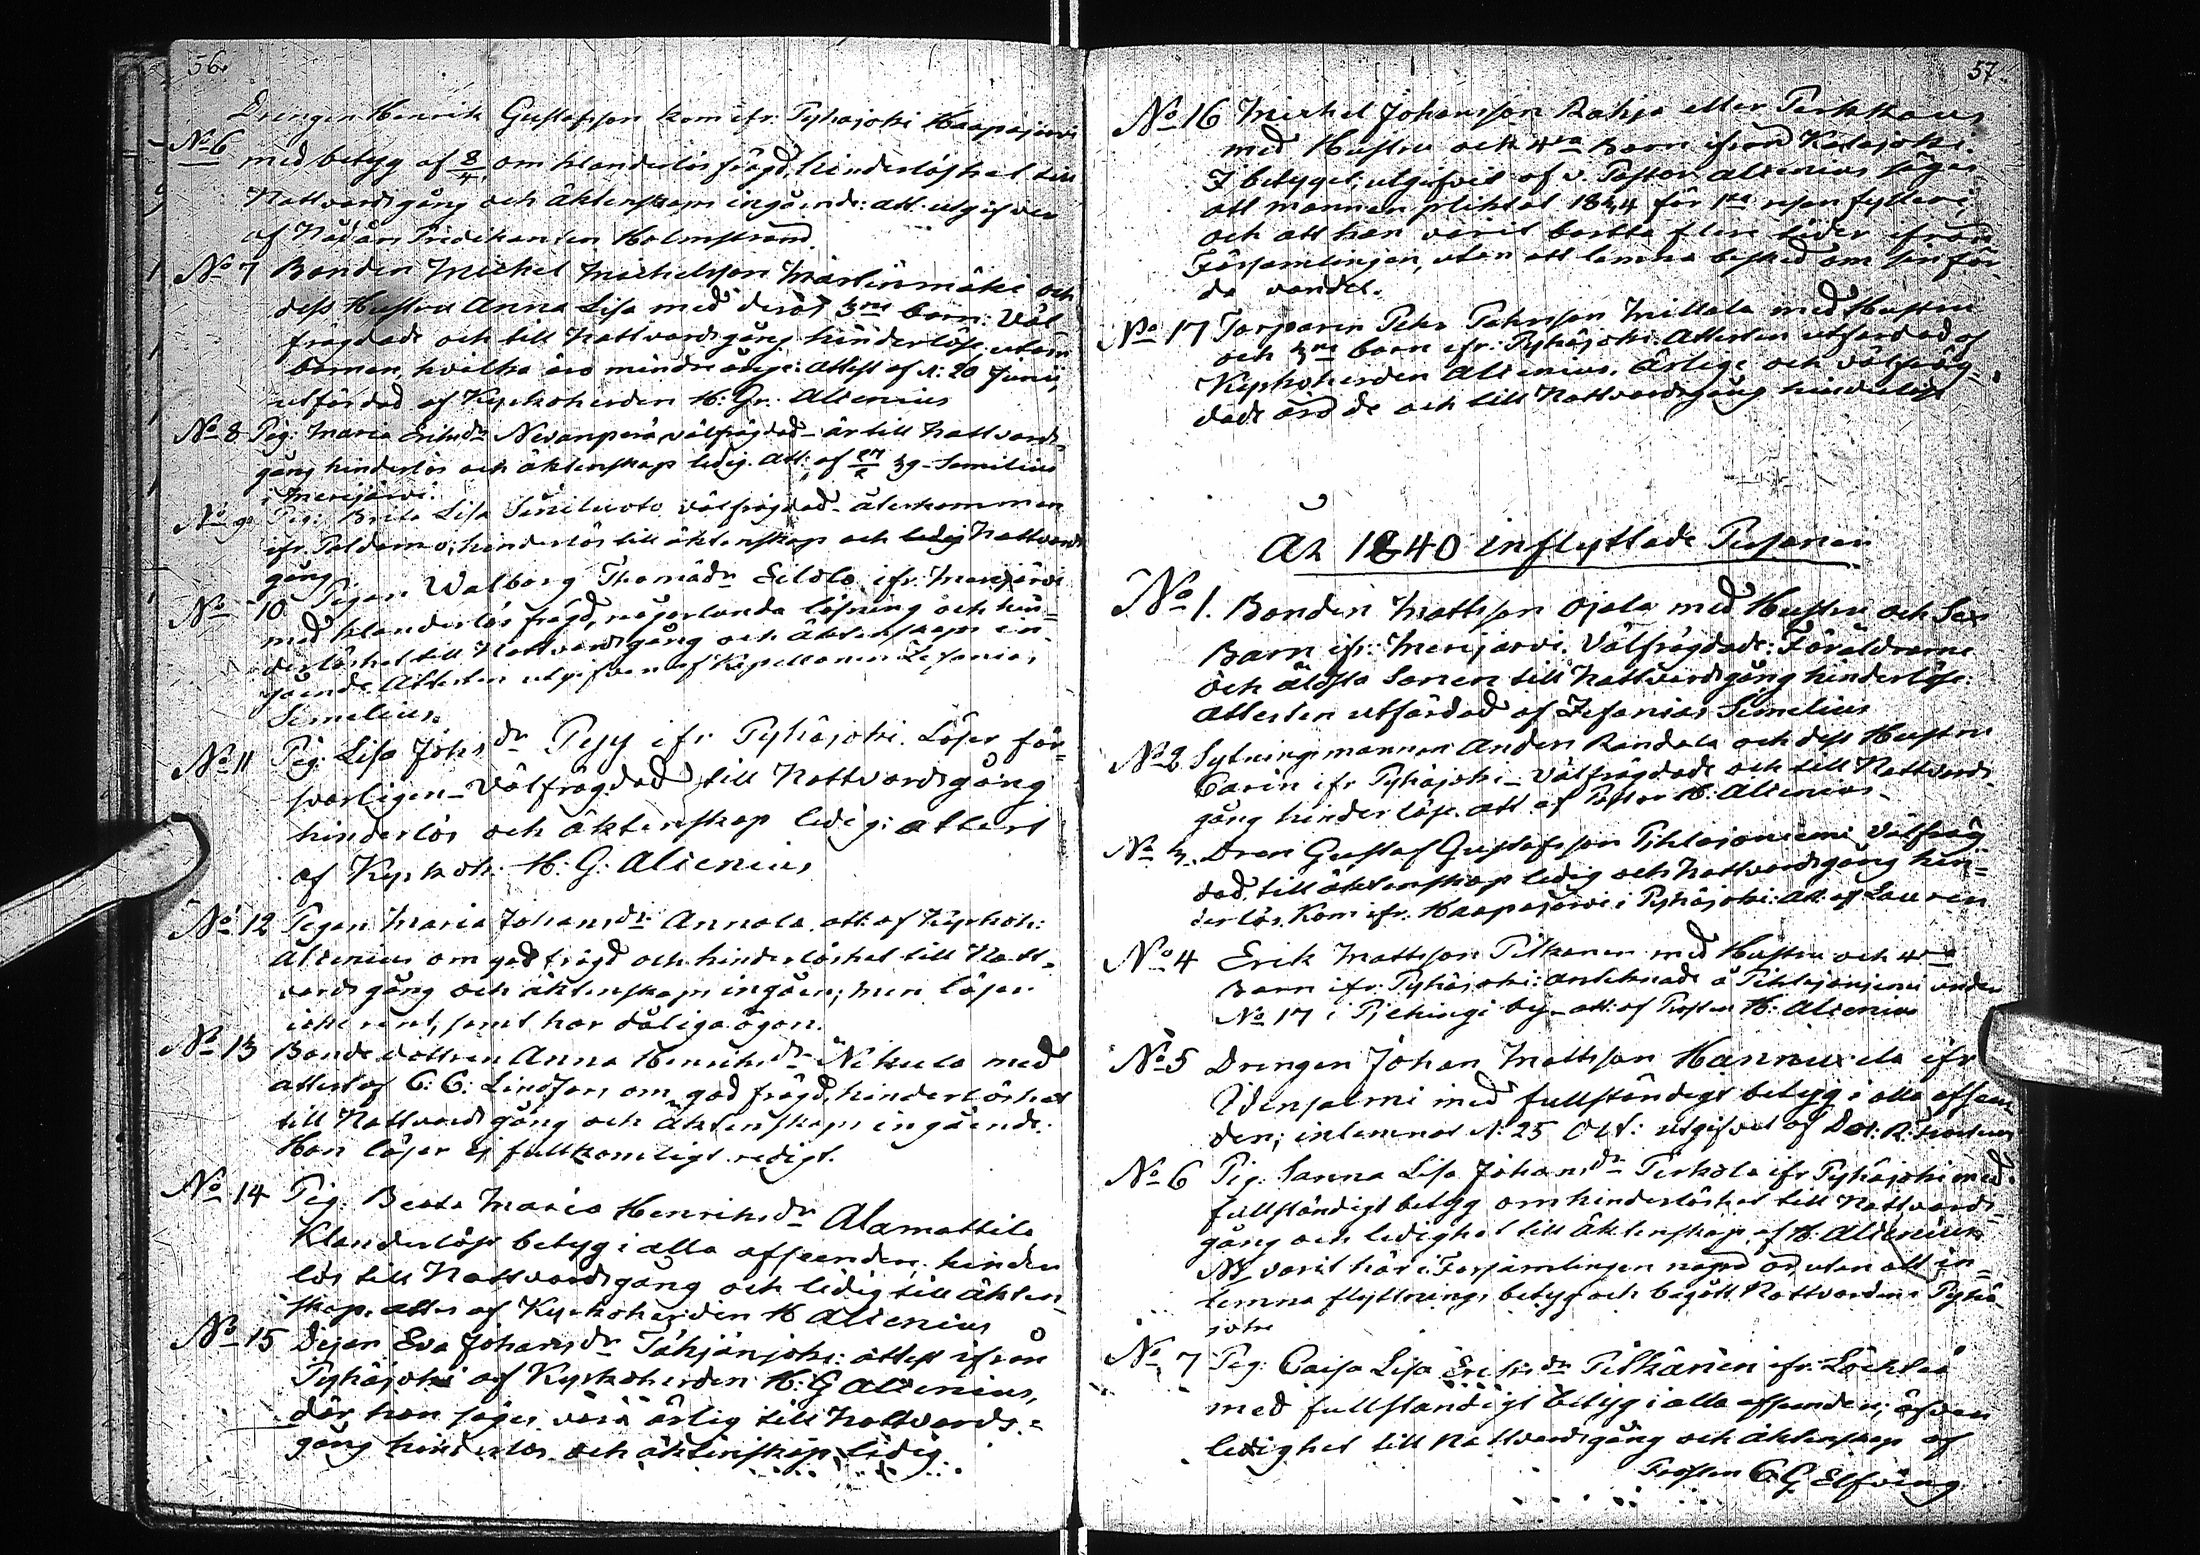 56.
Drengen Henrik Gustafsson kom ifr. Pyhäjoki Haapajärvi
No 6 med betyg af 8/4 om klanderlös frägd, hinderlöshet till
Nattvardsgång och äktenskaps ingående: att. utgifven
af Nådårs Predikanten Holmstrand.
No 7 Bonden Michel Michelsson Martinmäki och
dess Hustru Anna Lisa med deras 3ne barn: Väl-
frägdade och till Nattvardsgång hinderlöse utom
barnen, hvilka äro mindreårige: Attest af d: 20 Junii,
utfärdad af Kyrkoherden H: Gr. Alcenius
No 8 Pig. Maria Eriksdr Nevanperä välfrägdad - är till Nattvards-
gång hinderlös och äktenskap ledig. Att: af 27/2 39 - Simelius
i Merijärvi.
No 9 Pig: Brita Lisa Suniluoto välfrägdad - återkommen
ifr. Paldamo; hinderlös till äktenskap och ledig Nattvards
gång
No 10 Pigan Walborg Thomädr Eilola ifr. Merijärvi
med klanderlös frägd, någorlunda läsning och hin=
derlöshet till Nattvardsgång och Äktenskaps in-
gående. Attesten utgifven af Kapellanen Zefanias
Simelius.
No 11 Pig: Lisa Johsdr Pyy ifr Pyhäjoki. Läser för=
svarligen - Välfrägdad, till Nattvardsgång
hinderlös och äktenskap ledig: attest
af Kyrkoh: H: G: Alcenius
No 12 Pigan Maria Johansdr Annala att: af Kyrkoh:
Alcenius om god frägd och hinderlöshet till Natt-
vardsgång och äktenskaps ingåen; men läser
icke rent, samt har dåliga ögon.
No 13 Bondedottren Anna Henriksdr Nikula med
attest af C: C: Lindfors om god frägd, hinderlöshet
till Nattvardsgång och Äktenskaps ingående.
Hon läser ej fullkomligt redigt.
No 14 Pig: Beata Maria Henriksdr Alamattila
Klanderlöst betyg i alla afseenden, hinder
lös till Nattvardsgång och ledig till äkten-
skap. attes af Kyrkoherden H Alcenius
No 15 Pigan Eva Johansdr Tähjänjoki: attest ifrån
Pyhäjoki af Kyrkoherden H: G Alcenius,
där hon säges vara ärlig till Nattvards-=
gång hinderlös och äktenskap ledig.
57.
No 16 Michel Johansson Rahja eller Perkkaus
med Hustru och 4ra Barn ifrån Kalajoki.
I betyget, utgifvet af v. Pastor Alcenius säges
att mannen pliktat 1834 för 1sta resan fylleri,
och att han varit bortta flere tider ifrån
Församlingen, utan att lemna besked om sin för
da vandel.
No 17 Torparen Petter Pehrsson Mattala med Hustru
och 3ne barn ifr. Pyhäjoki. Attesten utfärdad af
Kyrkoherden Alcenius. Ärlige och välfräg-
dade äro de och till Nattvardsgång hinderlöse
År 1840 inflyttade Personer
No 1. Bonden Mattsson Ojala med Hustru och Sex
Barn ifr: Merijärvi. Välfrägdade: Föräldrarne
och äldsta Sonen till Nattvardsgång hinderlöse.
Attesten utfärdad af Zefanias Simelius
No 2 Sytningsmannen Anders Randala och dess Hustru
Carin ifr Pyhäjoki - välfrägdade och till Nattvards
gång hinderlöse. att af Pastor H: Alcenius.
No 3. Dren Gustaf Gustafsson Pihlajaniemi välfräg
dad, till äktenskap ledig och Nattvardsgång hin=
derlös. Kom ifr. Haapajärvi i Pyhäjoki: Att. af Lauren
No 4 Erik Mattsson Pitkanen med Hustru och 4ra
Barn ifr. Pyhäjoki: antecknade å Pihlajaniemi under
No 17 i Pjehingi by - att: af Prosten H: Alcenius
No 5 Drengen Johan Mattsson Hannuxela ifr
Idensalmi med fullständigt betyg i alla afseen
den; inlemnat d: 25 Oct: utgifvet af
No 6 Pig. Sanna Lisa Johansdr Pirkola ifr Pyhäjoki med
fullständigt betyg om hinderlöshet till Nattvards-
gång och ledighet till Äktenskap, af H: Alcenius
NB varit här i Församlingen någrd år, utan att in=
lemna flyttnings betyg och begått Nattvarden i Pyhä
joki
No 7 Pig: Caisa Lisa Eriksdr Pitkänen ifr. Lochteå
med fullständigt betyg i alla afseenden; äfven
ledighet till Nattvardsgång och äktenskap af
Prosten C G Elfving